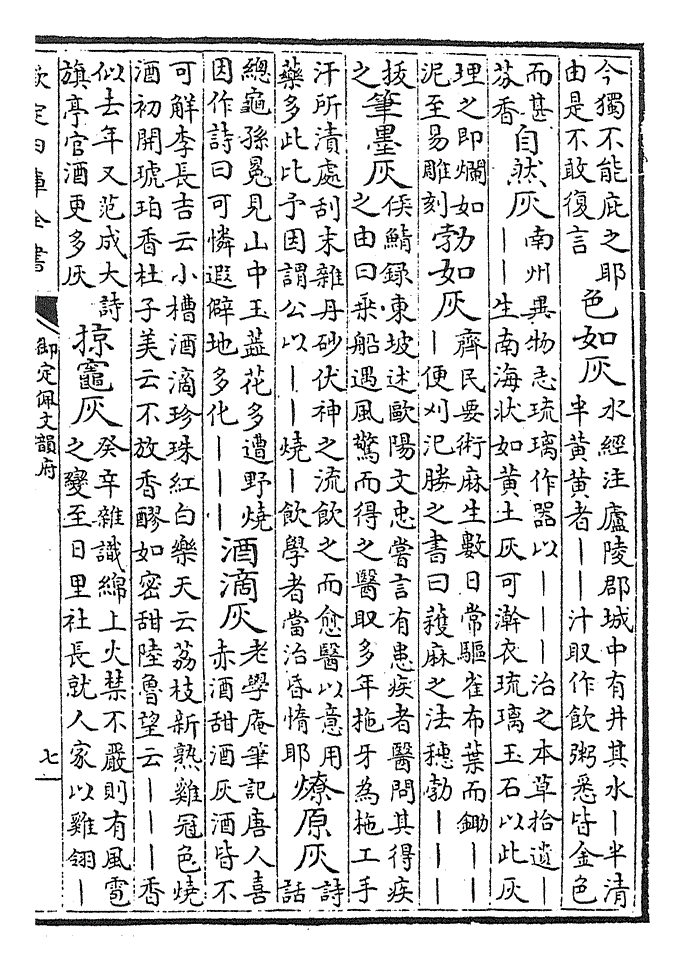 今獨不能庇之耶
由是不敢復言
色如灰
水經注廬陵郡城中有井其水｜半清
半黄黄者｜｜汁取作飲粥悉皆金色
而甚
芬香
自然灰
南州異物志琉璃作器以｜｜｜治之本草拾遺｜
｜｜生南海状如黄土灰可澣衣琉璃玉石以此灰
理之即爛如
泥至易雕刻
勃如灰
齊民要術麻生數日常驅雀布葉而鋤｜｜
｜便刈氾勝之書曰穫麻之法穗勃｜｜｜
拔
之
筆墨灰
侯鯖錄東坡述歐陽文忠嘗言有患疾者醫問其得疾
之由曰乗船遇風驚而得之醫取多年拖牙為拖工手
汗所漬處刮末雜丹砂伏神之流飲之而愈醫以意用
藥多此比予因謂公以｜｜燒｜飲學者當治昏惰耶
燎原灰
詩
話
總龜孫冕見山中玉蕋花多遭野燒
因作詩曰可憐遐僻地多化｜｜｜
酒滴灰
老學庵筆記唐人喜
赤酒甜酒灰酒皆不
可解李長吉云小槽酒滴珍珠紅白樂天云荔枝新熟雞冠色燒
酒初開琥珀香杜子美云不放香醪如密甜陸魯望云｜｜｜｜香
似去年又范成大詩
旗亭官酒更多灰
掠竈灰
癸辛雜識綿上火禁不嚴則有風雹
之變至日里社長就人家以雞翎｜
欽定四庫全書
御定佩文韻府
七